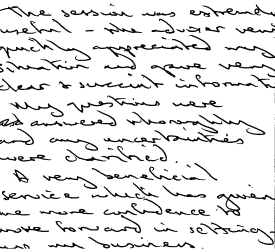 The session was extremely
useful - the adviser very
quickly appreciated my
situation and gave very
clear & succinct informati
My questions were
all answered thoroughly
and any uncertainties
were clarified.
A very beneficial
service which has given
me more confidence to
move forward in setting
up my business.